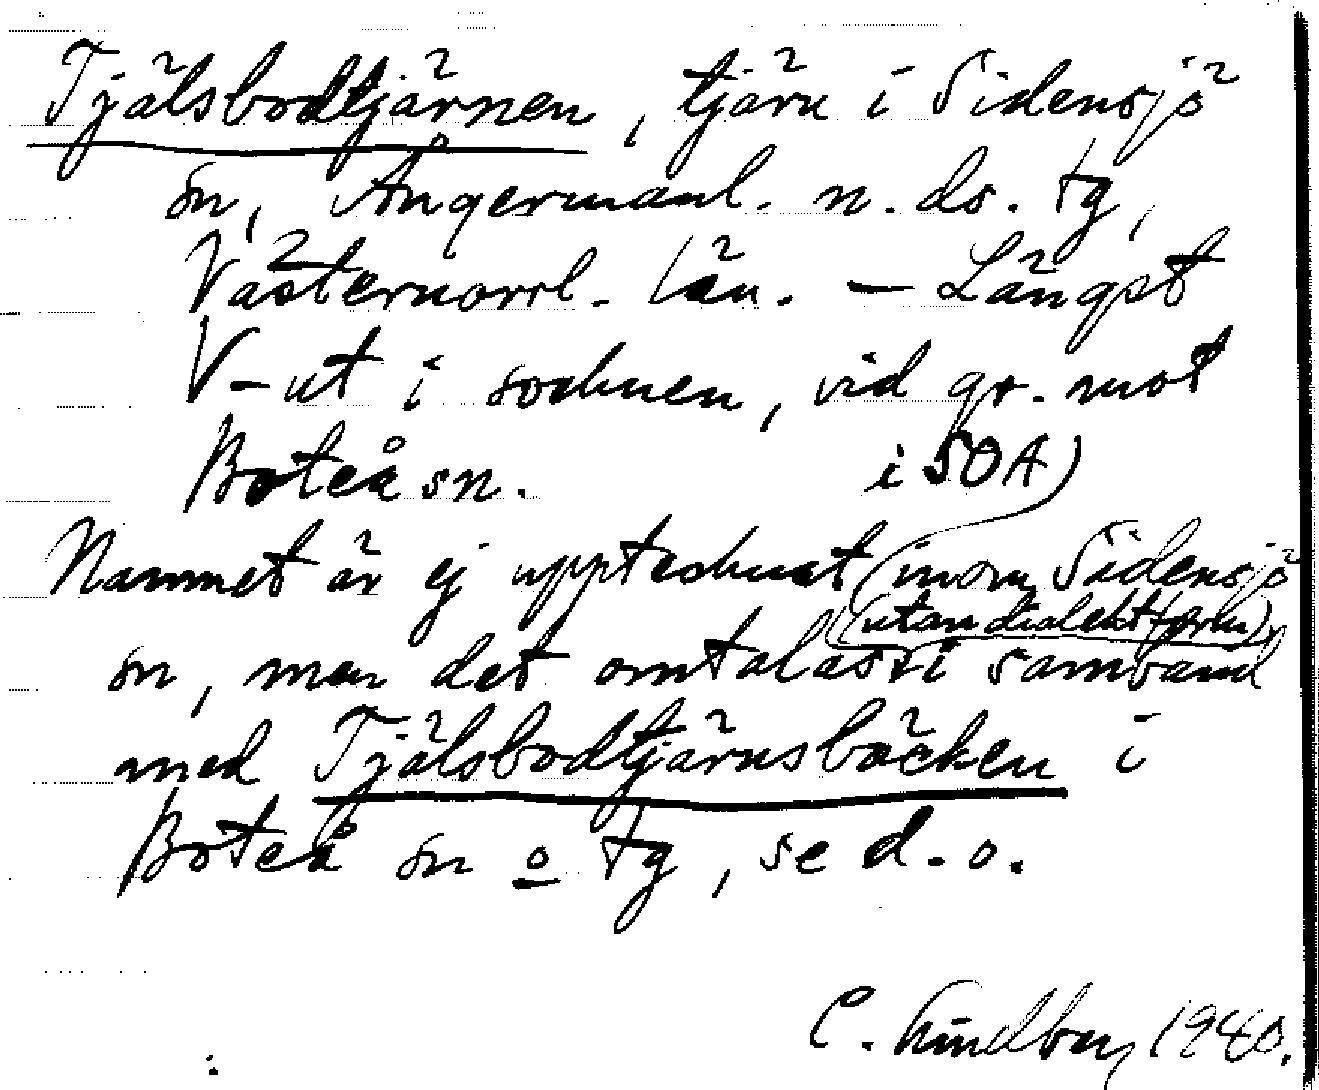 Tjälsbodtjärnen, tjärn i Sidensjö
sn, Ångermanl. n. ds. tg,
Västernorrl. län. – Längst
V-ut i socknen, vid gr. mot
Boteå sn.
i SOA)
Namnet är ej upptecknat (inom Sidensjö
(utan dialektform)
sn, men det omtalas i samband
med Tjälsbodtjärnsbäcken i
Boteå sn o tg, se d. o.
C. Lindberg 1980.